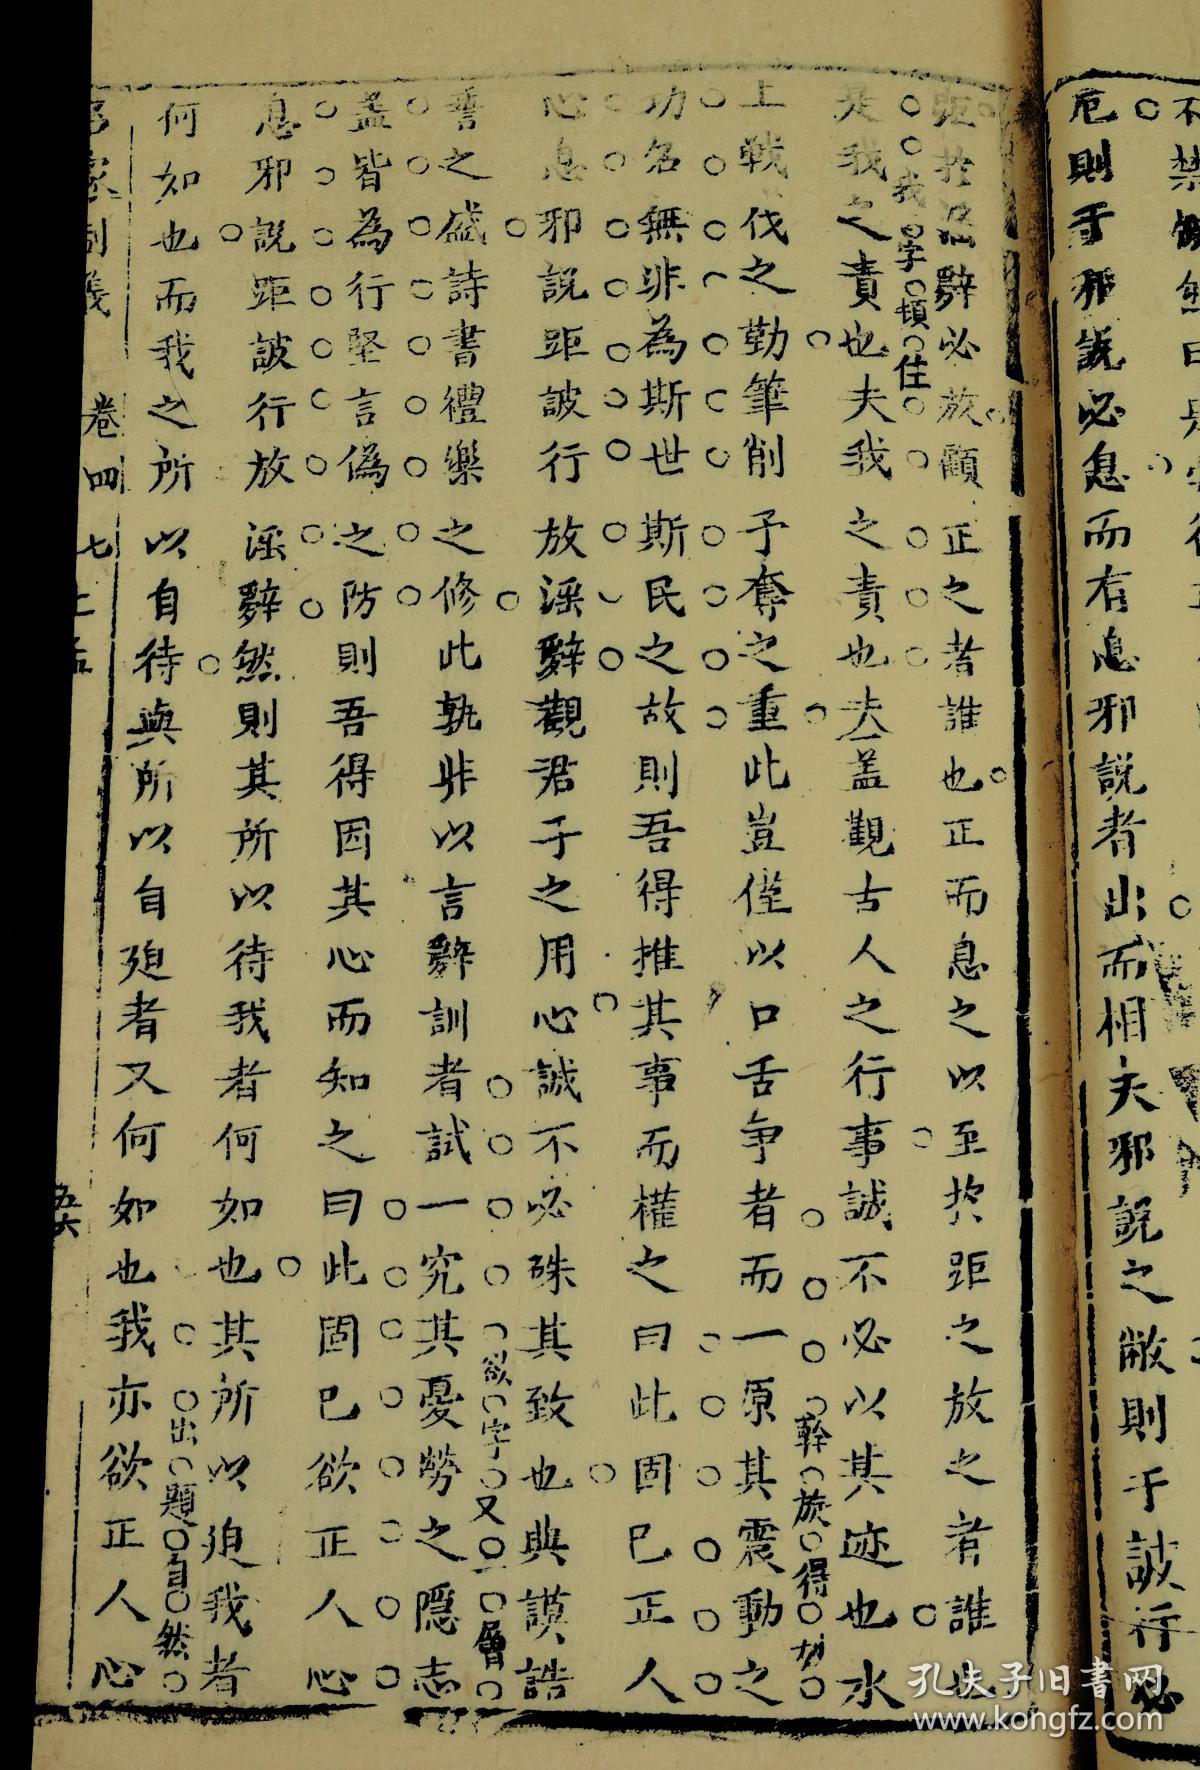 不禁
厄則于邪說必息而有息邪說者出而相夫邪說之敝則于詖行必
距於淫辭必放顧正之者誰也正而息之以至於距之放之者誰也
我字頓住
是我之責也夫我之責也夫蓋觀古人之行事誠不必以其迹也水
斡旋得
土戰伐之勤筆削予奪之重此豈僅以口舌爭者而一原其震動之
功名無非為斯世斯民之故則吾得推其事而權之曰此固已正人
心息邪說距詖行放淫辭觀君子之用心誠不必殊其致也典謨誥
欲字又一層
誓之盛詩書禮樂之修此孰非以言辭訓者試一究其憂勞之隱志
蓋皆為行堅言偽之防則吾得因其心而知之曰此固已欲正人心
息邪說距詖行放淫辭然則其所以待我者何如也其所以迫我者
出題自然
何如也而我之所以自待與所以自迫者又何如也我亦欲正人心
名家制義 卷四 七 上孟 五六
孔夫子旧书网
www.kongfz.com